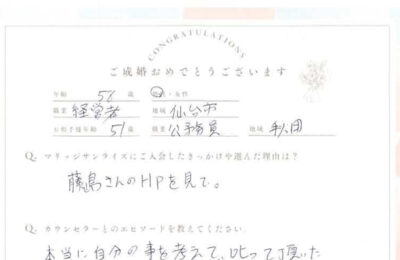 CONGRATULATIONS
ご成婚おめでとうございます
年齢 56 歳 男性・女性
職業 経営者 地域 仙台市
お相手達年齢 51 歳 職業 公務員 地域 秋田
Q. マリッジサンライズにご入会したきっかけや選んだ理由は?
藤島さんのHPを見て。
Q. カウンセラーとのエピソードを教えてください
本当に自分の事を考えて、叱って頂いた